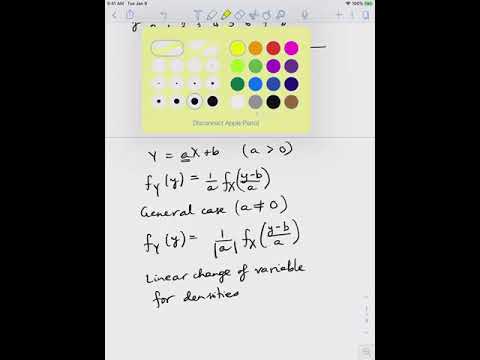 9:41 AM Tue Jan 9
100%
Disconnect Apple Pencil
Y = aX+b (a > 0)
f_Y(y) = 1/a f_X((y-b)/a)
General case (a ≠ 0)
f_Y(y) = 1/|a| f_X((y-b)/a)
Linear change of variable
for densities